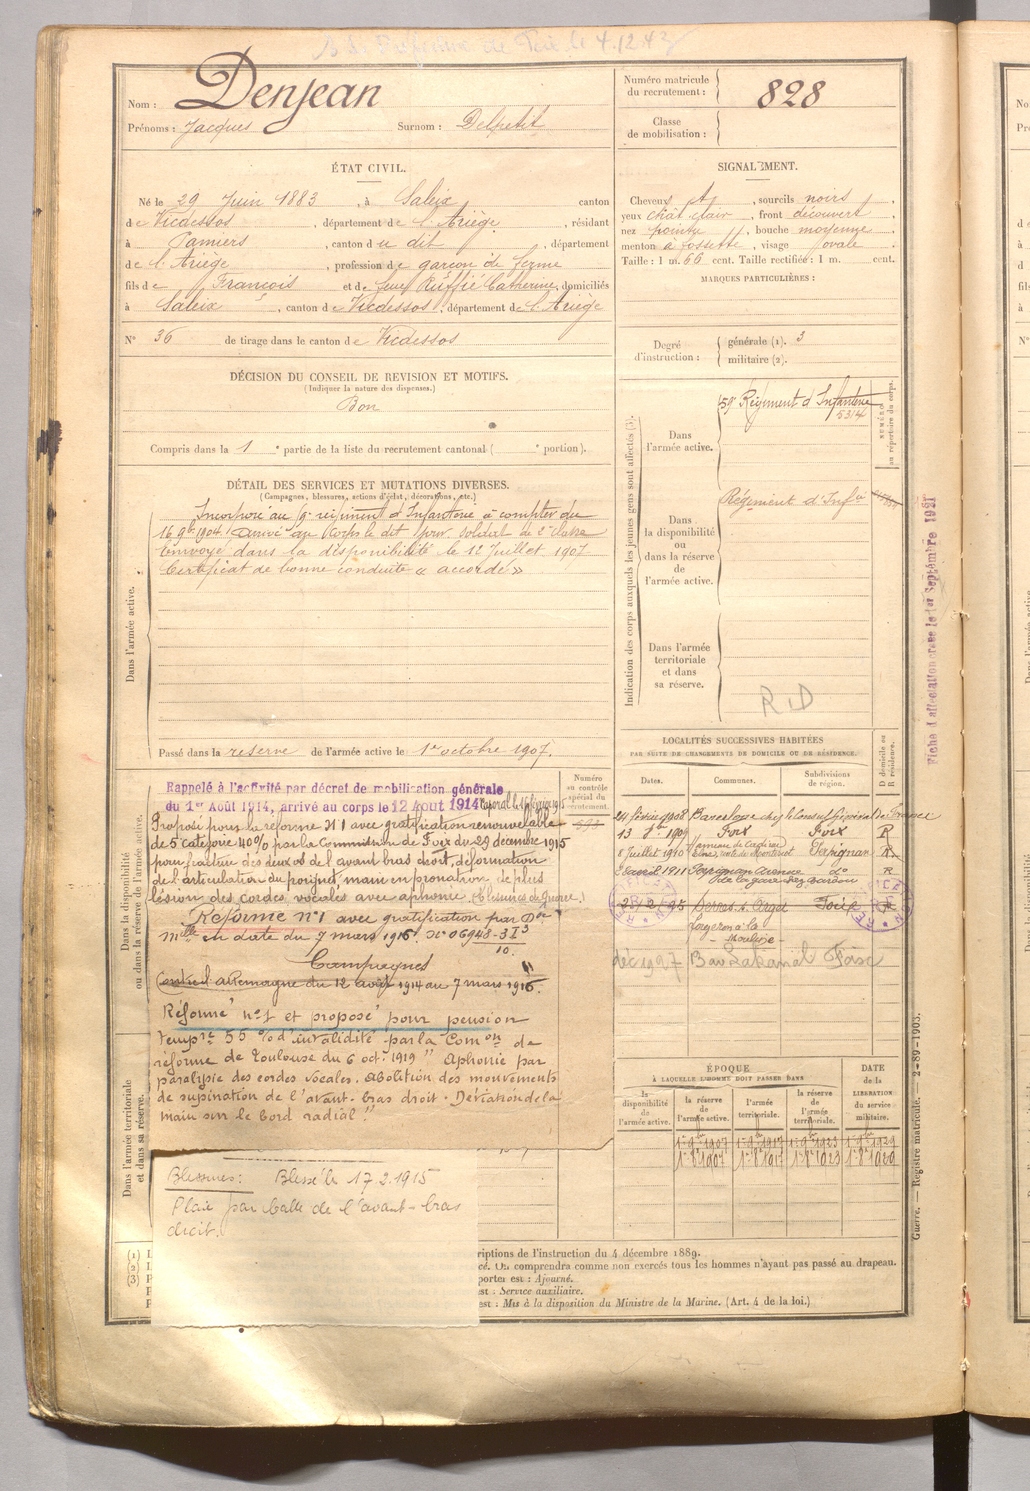 Nom : Denjean
Prénoms : Jacques Surnom : Delpetit
Numéro matricule du recrutement : 828
Classe de mobilisation :
ÉTAT CIVIL.
Né le 29 Juin 1883, à Saleix canton
de Vicdessos, département de l'Ariège, résidant
à Pamiers, canton du dit, département
de l'Ariège, profession de garçon de ferme
fils de François et de feue Ruffié Catherine, domiciliés
à Saleix, canton de Vicdessos, département de l'Ariège
N° 36 de tirage dans le canton de Vicdessos
SIGNALEMENT.
Cheveux, sourcils noirs,
yeux chât clair, front découvert,
nez pointu, bouche moyenne,
menton à fossette, visage ovale.
Taille : 1 m. 66 cent. Taille rectifiée : 1 m. cent.
MARQUES PARTICULIÈRES :
Degré d'instruction : générale (1). 3
militaire (2).
DÉCISION DU CONSEIL DE REVISION ET MOTIFS.
(Indiquer la nature des dispenses.)
Bon
Compris dans la 1e partie de la liste du recrutement cantonal ( e portion).
DÉTAIL DES SERVICES ET MUTATIONS DIVERSES.
(Campagnes, blessures, actions d'éclat, décorations, etc.)
Dans l'armée active.
Incorporé au 59e régiment d'Infanterie à compter du
16 9bre 1904. Arrivé au Corps le dit jour. soldat de 2e classe
Envoyé dans la disponibilité le 12 Juillet 1907
Certificat de bonne conduite « accordé »
Passé dans la réserve de l'armée active le 1er octobre 1907.
Indication des corps auxquels les jeunes gens sont affectés (3).
Dans l'armée active.
59e Régiment d'Infanterie
5314
NUMÉRO au répertoire du corps.
Dans la disponibilité ou dans la réserve de l'armée active.
Régiment d'Infie
Dans l'armée territoriale et dans sa réserve.
R D
Fiche d'affectation crase le 1er Septembre 1927
Dans la disponibilité ou dans la réserve de l'armée active.
Rappelé à l'activité par décret de mobilisation générale
du 1er Août 1914, arrivé au corps le 12 Aout 1914 Caporal le 16 février 1915
Numéro au contrôle spécial du recrutement.
593
Proposé pour la réforme N°1 avec gratification renouvelable
de 5e catégorie 40% par la Commission de Foix du 29 décembre 1915
pour fracture des deux os de l'avant bras droit, déformation
de l'articulation du poignet, main en pronation, de plus
lésion des cordes vocales avec aphonie (Blessures de Guerre.)
Réformé n°1 avec gratification par Don
Mlle en date du 7 mars 1916. N° 06948-3 I3
10.
Campagnes
Contre l'Allemagne du 12 août 1914 au 7 mars 1916.
Réformé n°1 et proposé pour pension
tempre 55 % d'invalidité par la Comon de
réforme de Toulouse du 6 oct. 1919 " Aphonie par
paralysie des cordes vocales. Abolition des mouvements
de supination de l'avant-bras droit. Déviation de la
main sur le bord radial "
Dans l'armée territoriale et dans sa réserve.
Blessures : Blessé le 17.2.1915
Plaie par balle de l'avant-bras
droit.
LOCALITÉS SUCCESSIVES HABITÉES
PAR SUITE DE CHANGEMENTS DE DOMICILE OU DE RÉSIDENCE.
Dates. Communes. Subdivisions de région. D domicile ou R résidence.
24 février 1908 Barcelone chez le Consul Général de France
13 1909 Foix Foix R
8 Juillet 1910 Perpignan R
2 avril 1911 Perpignan Avenue do R
de la gare
Serres s. Arget Foix
la Mouline
déc 1927 Foix
ÉPOQUE
À LAQUELLE L'HOMME DOIT PASSER DANS
la disponibilité de l'armée active. la réserve de l'armée active. l'armée territoriale. la réserve de l'armée territoriale. DATE de la LIBÉRATION du service militaire.
Guerre. — Registre matricule. — 2-89-1903.
(1) L
(2) L
(3) P
criptions de l'instruction du 4 décembre 1889.
cé. On comprendra comme non exercés tous les hommes n'ayant pas passé au drapeau.
porter est : Ajourné.
est : Service auxiliaire.
est : Mis à la disposition du Ministre de la Marine. (Art. 4 de la loi.)